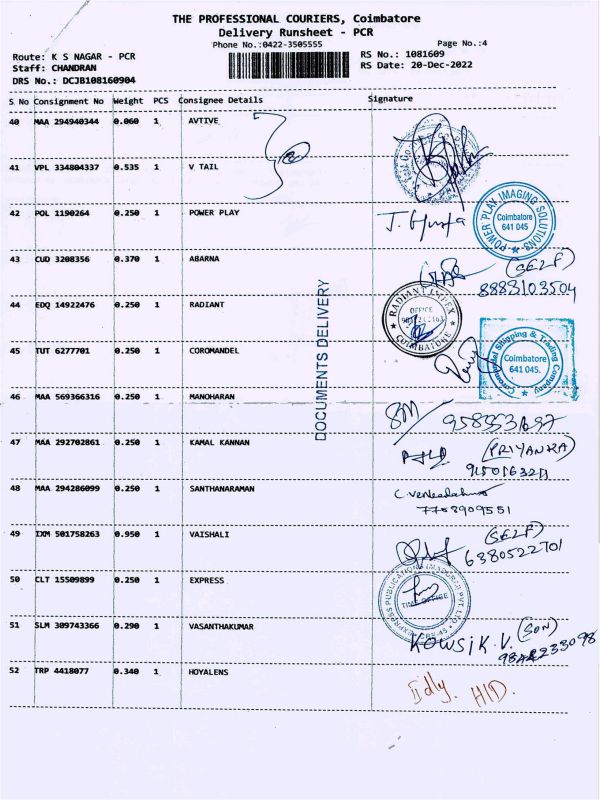 THE PROFESSIONAL COURIERS, Coimbatore
Delivery Runsheet - PCR
Phone No.:0422-3505555
Page No.:4
Route: K S NAGAR - PCR
RS No.: 1081609
Staff: CHANDRAN
RS Date: 20-Dec-2022
DRS No.: DCJB108160904
S No Consignment No Weight PCS Consignee Details Signature
40 MAA 294940344 0.060 1 AVTIVE
41 VPL 334804337 0.535 1 V TAIL
42 POL 1190264 0.250 1 POWER PLAY
POWER PLAY IMAGING SOLUTIONS
Coimbatore
641 045
43 CUD 3208356 0.370 1 ABARNA (SELF)
8883103504
44 EDQ 14922476 0.250 1 RADIANT
RADIANT IMPEX
OFFICE
COIMBATORE
45 TUT 6277701 0.250 1 COROMANDEL
Coromandel Shipping & Trading Company
Coimbatore
641 045.
DOCUMENTS DELIVERY
46 MAA 569366316 0.250 1 MANOHARAN
47 MAA 292702861 0.250 1 KAMAL KANNAN (PRIYANKA)
48 MAA 294286099 0.250 1 SANTHANARAMAN
7708909551
49 IXM 501758263 0.950 1 VAISHALI (SELF)
6380522701
50 CLT 15509899 0.250 1 EXPRESS
EXPRESS PUBLICATIONS (MADURAI) PVT LTD
TIME OFFICE
CBE-45
51 SLM 309743366 0.290 1 VASANTHAKUMAR KOWSIK.V. (SON)
52 TRP 4418077 0.340 1 HOYALENS